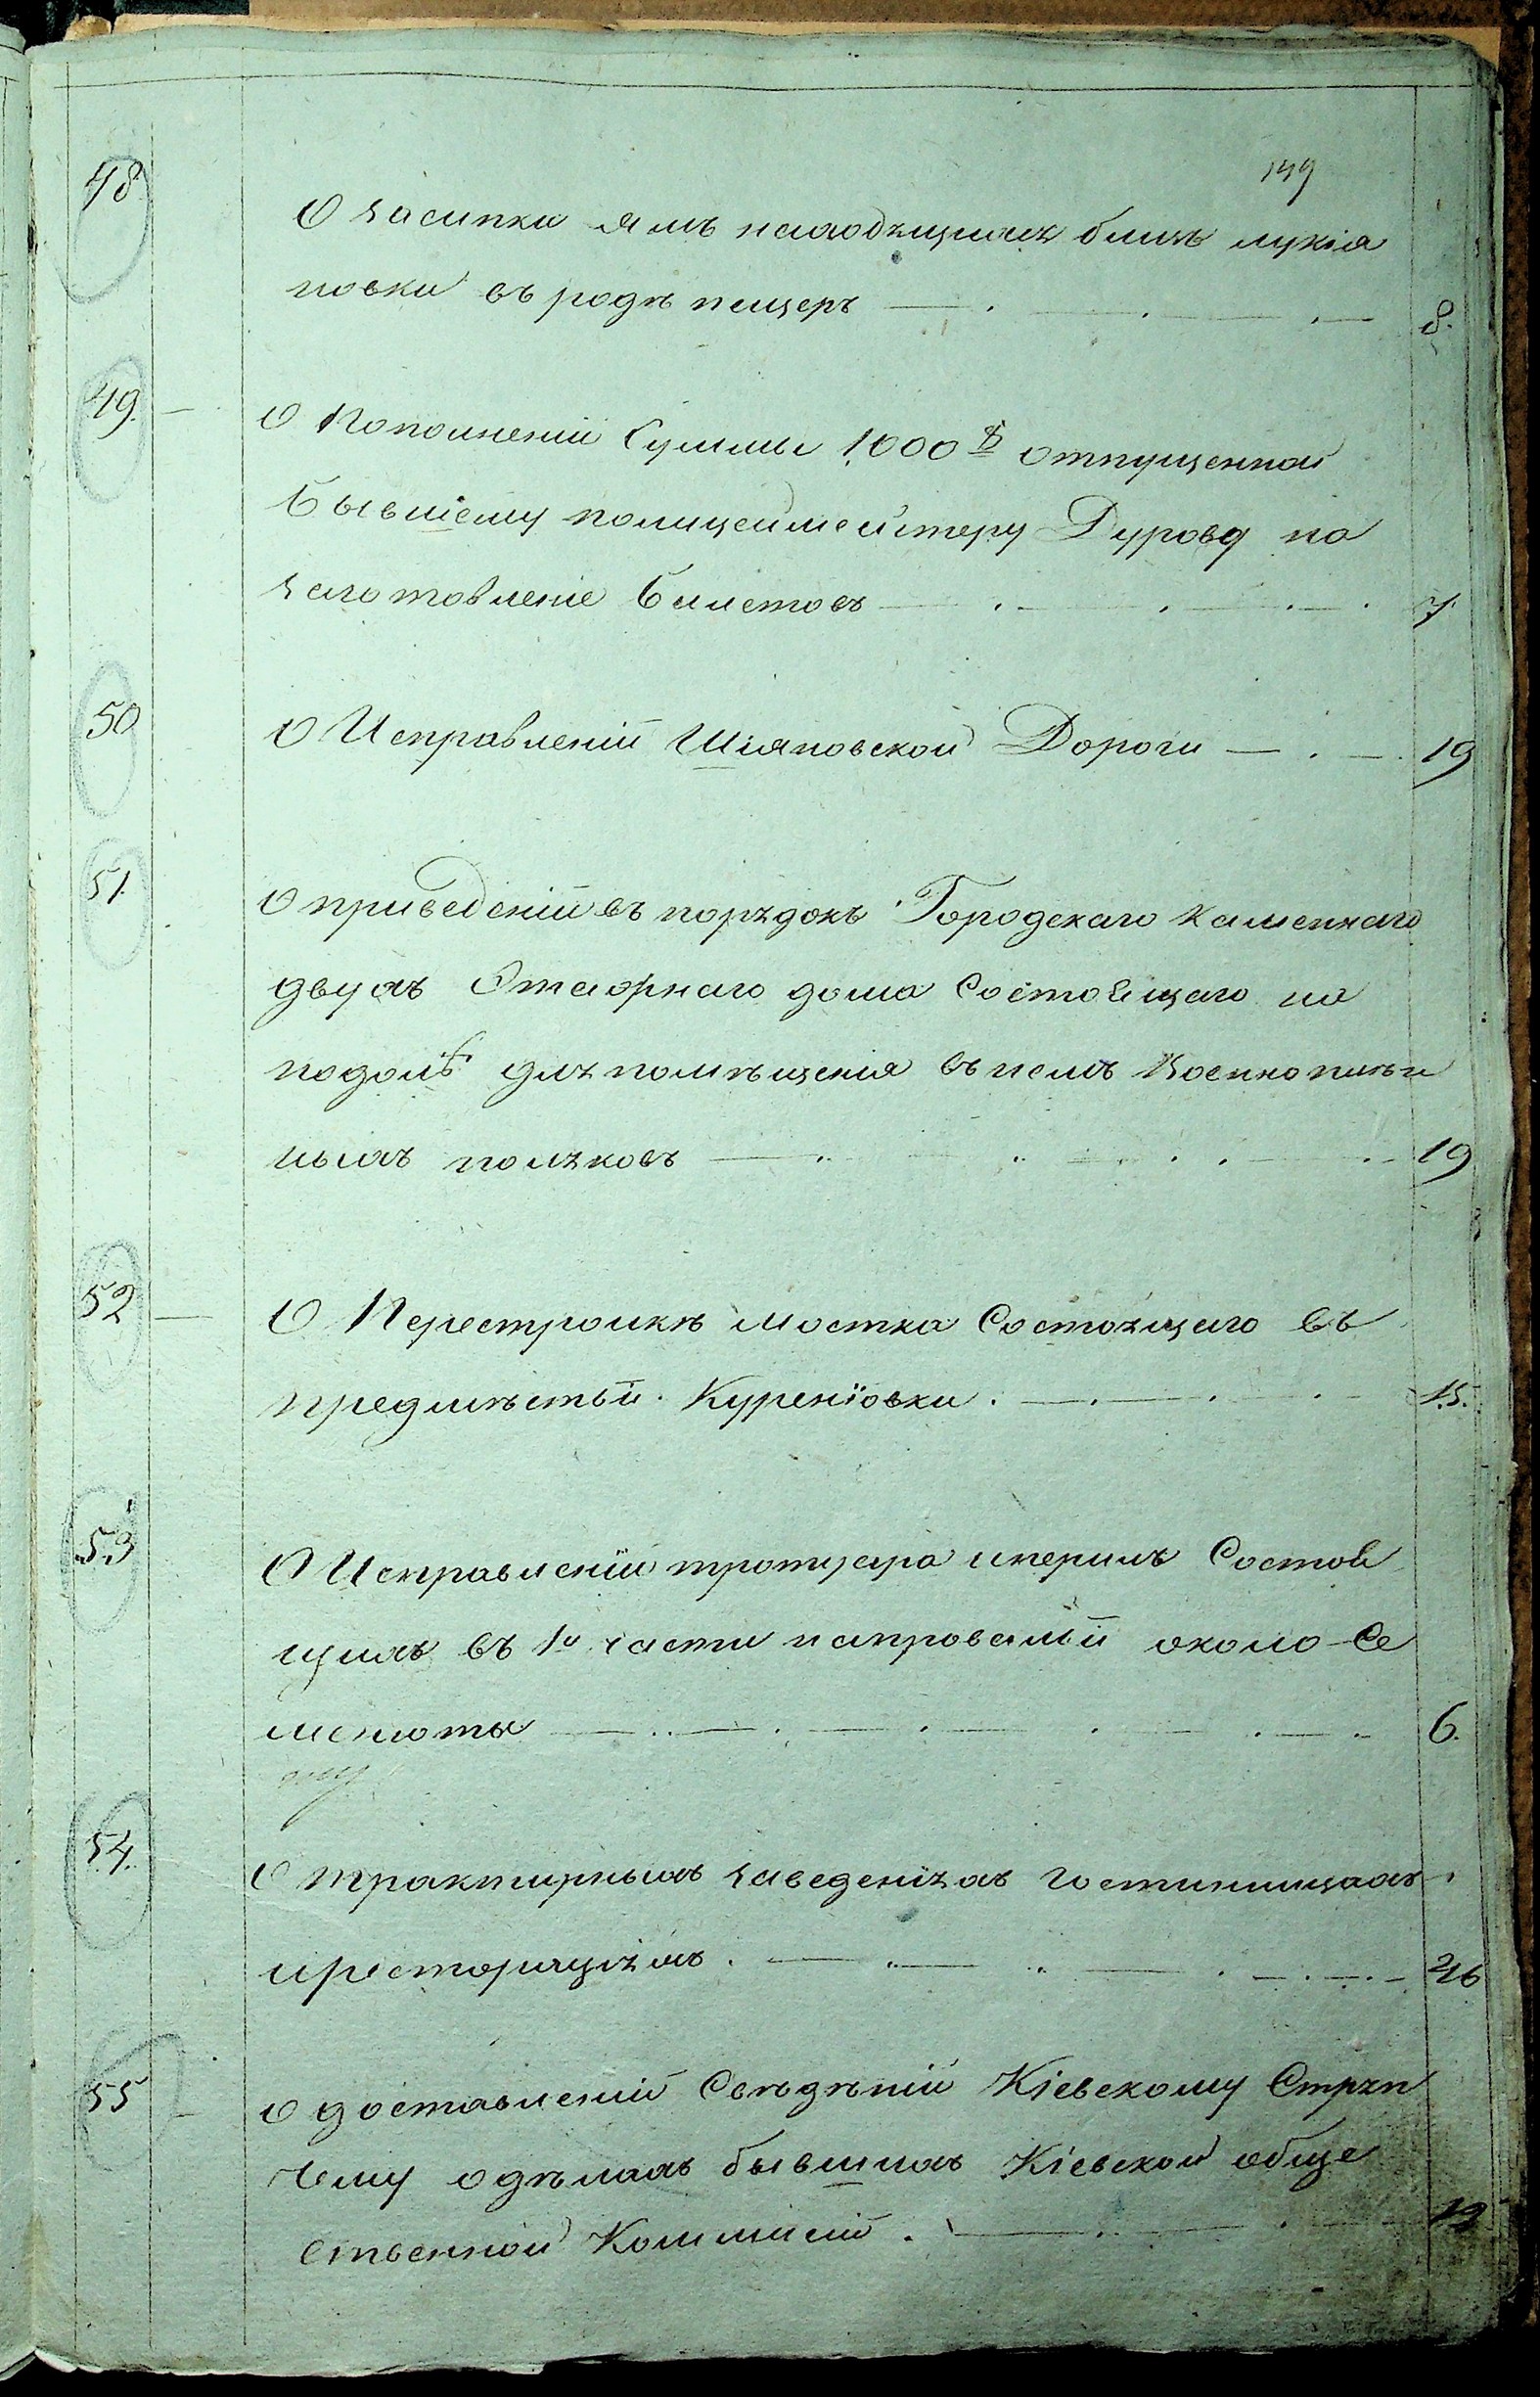 149
48. О засипки ямъ находящихъ близъ лукія
новки въ родѣ пещеръ 8.
49. О Пополненіи Суммы 1000 р отпущенной
Бывшему полицеймейстеру Дурову на
заготовленіе билетовъ 7.
50 О Исправленіи Шіяновской Дороги 19
51. О приведеніи въ порядокъ Городскаго каменнаго
двухъ Этажнаго дома Состоящаго на
подолѣ для помѣщенія въ немъ Военно плѣн
ныхъ поляковъ 19
52 О Перестройкѣ мостка Состоящаго въ
предмѣстьи Куренёвки 15.
53 О Исправленіи тротуара и перилъ Состоя
щихъ въ 1й части на провальи около Се
менюты 6.
54. О трактирныхъ заведеніяхъ гостинницахъ
и ресторяціяхъ 26
55 О доставленіи Свѣдѣній Кіевскому Стряп
чему о дѣлахъ бывшихъ Кіевской обще
ственной Коммисіи 19